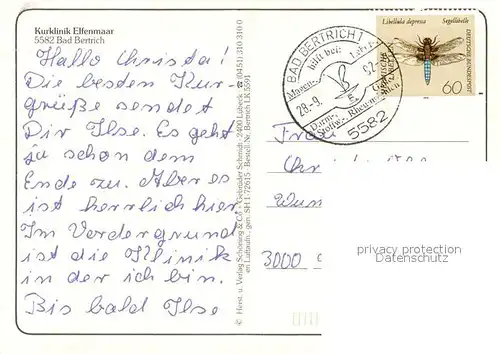 Kurklinik Elfenmaar
5582 Bad Bertrich
Hallo Christa!
Die besten Kur-
grüße sendet
Dir Ilse. Es geht
ja schon dem
Ende zu. Aber es
ist herrlich hier.
Im Vordergrund
ist die Klinik
in der ich bin.
Bis bald Ilse
© Herst. u. Verlag Schöning & Co. - Gebrüder Schmidt · 2400 Lübeck ☎ (0451) 310 310 0
SH 1 - 72615 · Bestell-Nr. Bertrich LK 5591
BAD BERTRICH 1
hilft bei:
Magen-
28.-9.
Darm-
Stoffw.-
Rheuma-
5582
Libellula depressa
Segellibelle
DEUTSCHE BUNDESPOST
60
Frau
3000
privacy protection
Datenschutz